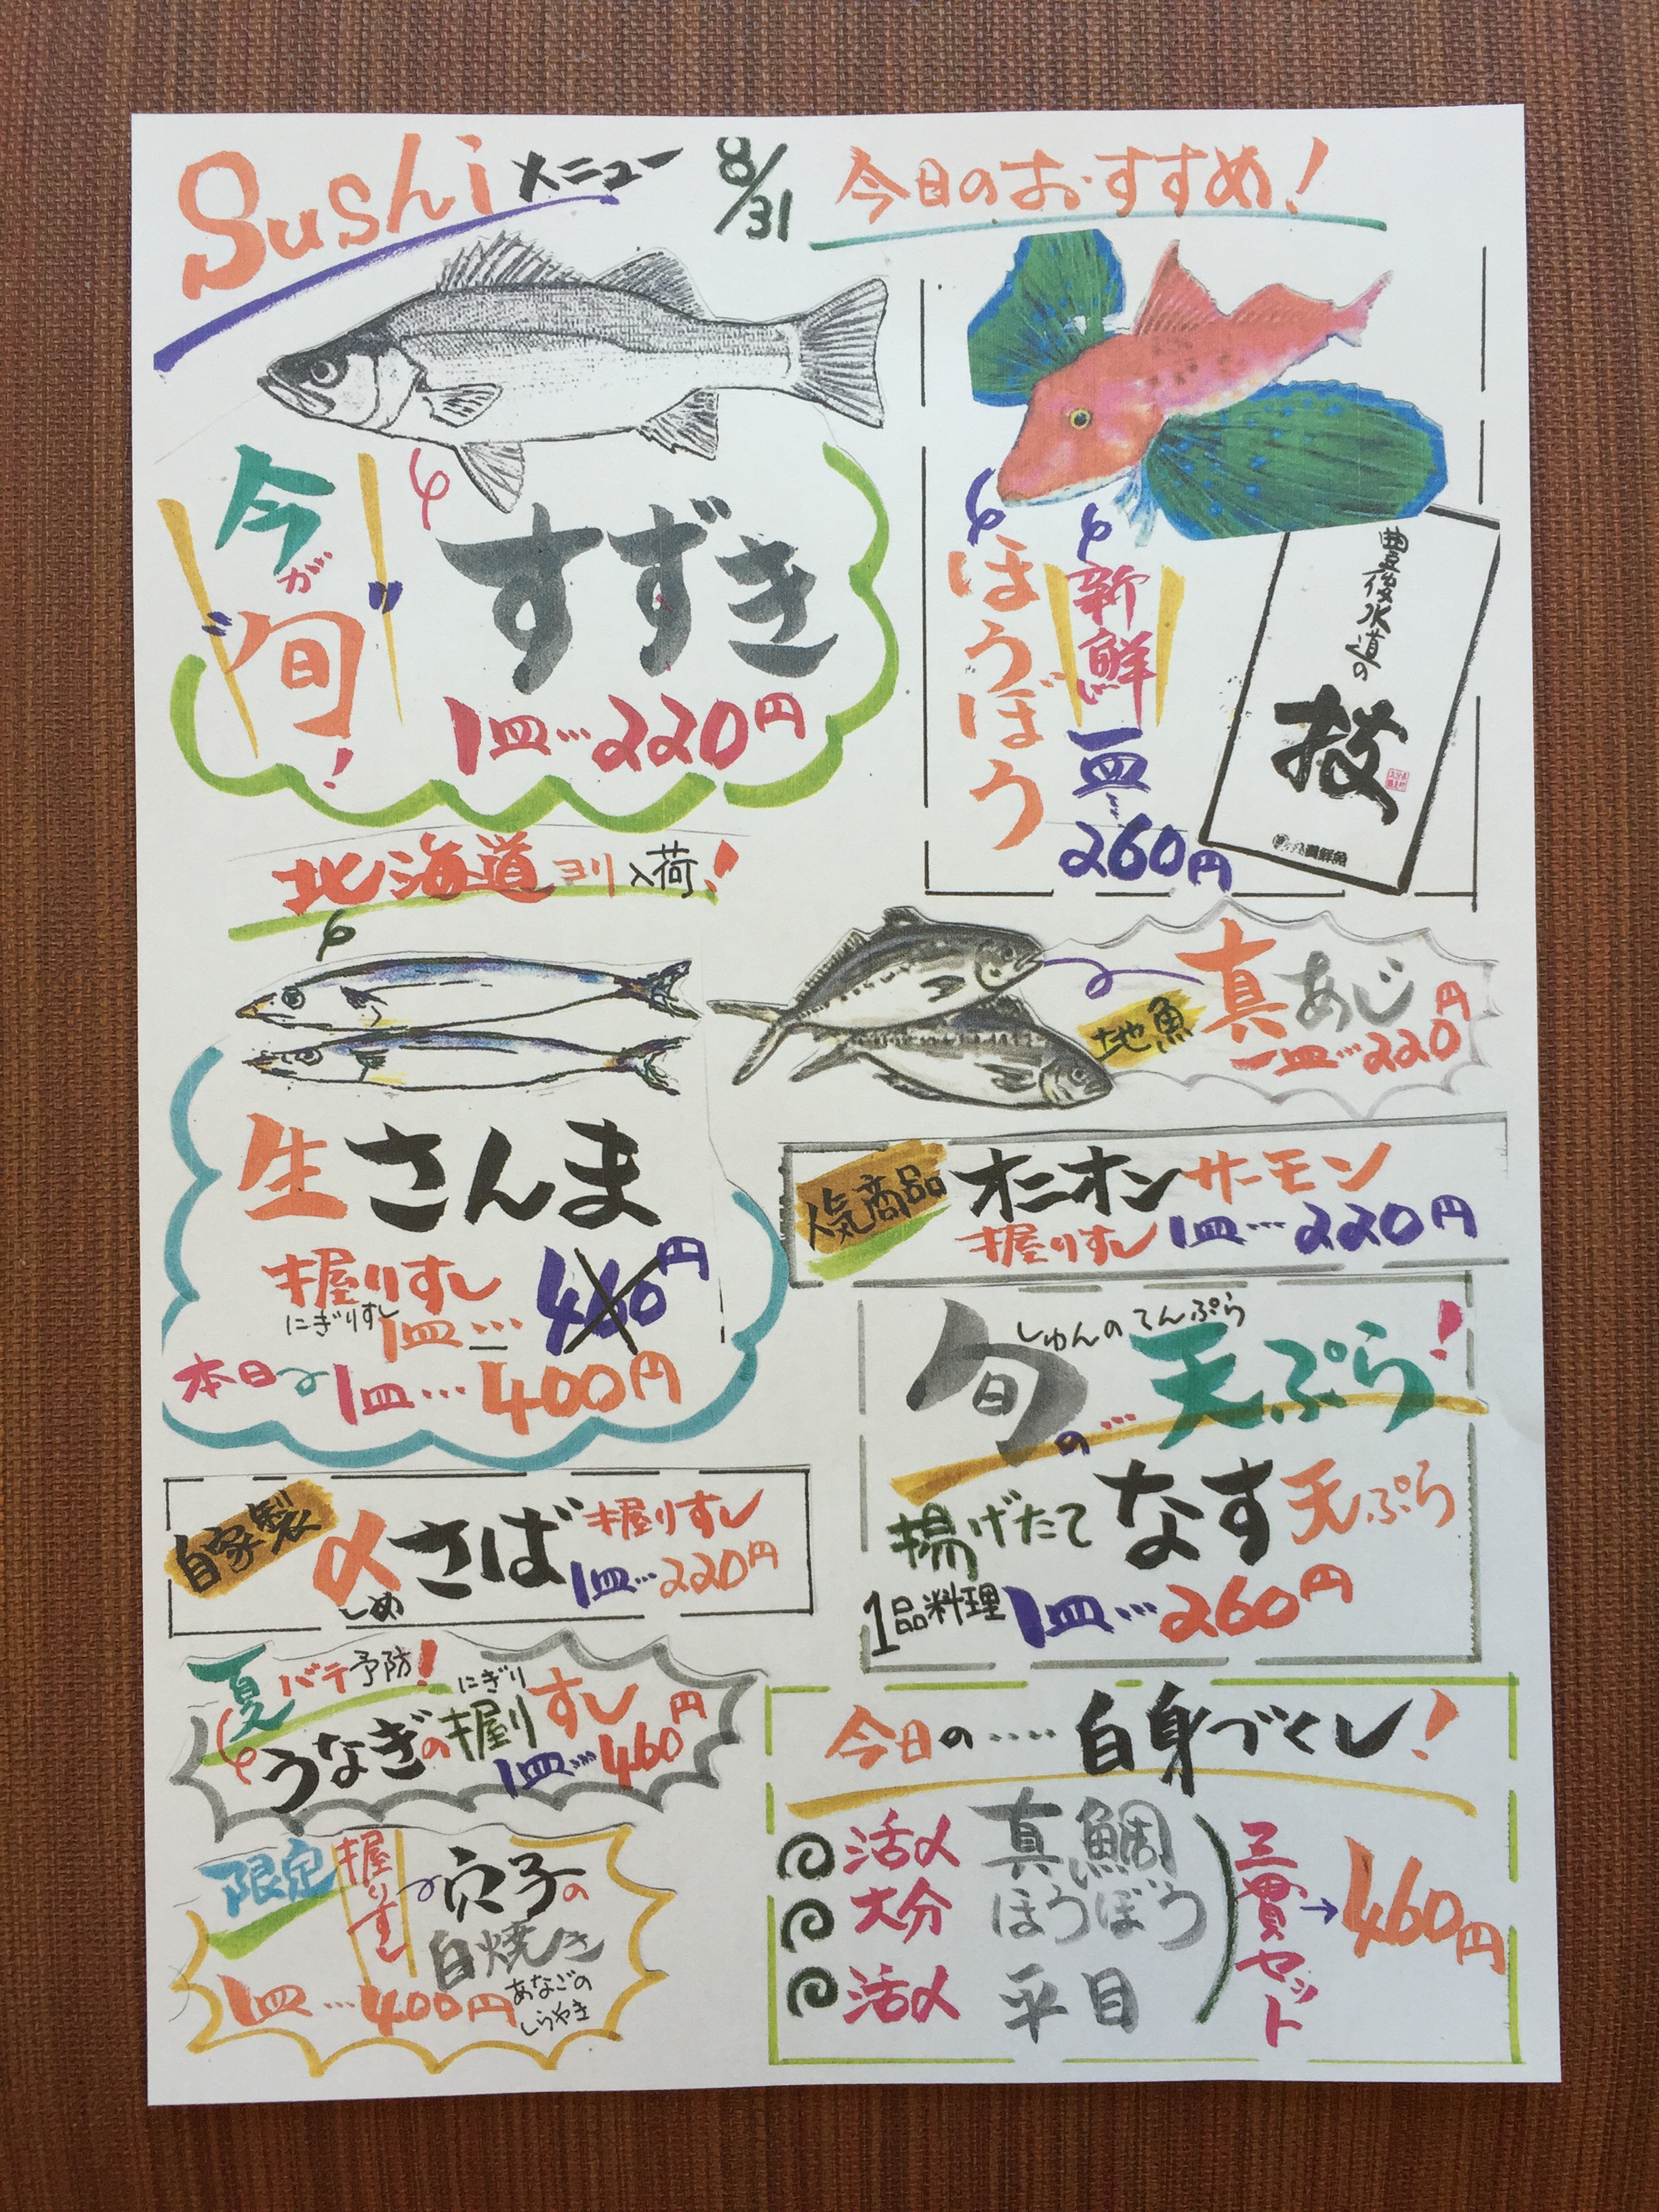 Sushiメニュー
8/31
今日のおすすめ!
今が
"旬"!
すずき
1皿…220円
ほうぼう
新鮮
一皿…
260円
豊後水道の
技
北海道ヨリ入荷!
生さんま
握りすし
にぎりすし
1皿… 460円
本日 1皿…400円
地魚
真あじ
一皿…220円
人気商品
オニオンサーモン
握りすし 1皿…220円
しゅんのてんぷら
旬の…天ぷら!
揚げたてなす天ぷら
1品料理 1皿…260円
自家製
〆さば握りすし
しめ
1皿…220円
夏バテ予防!
にぎり
うなぎの握りすし
1皿…460円
限定
握りすし
穴子の
白焼き
あなごの
しらやき
1皿…400円
今日の‥‥白身づくし!
活〆 真鯛
大分 ほうぼう
活〆 平目
三貫セット
→460円